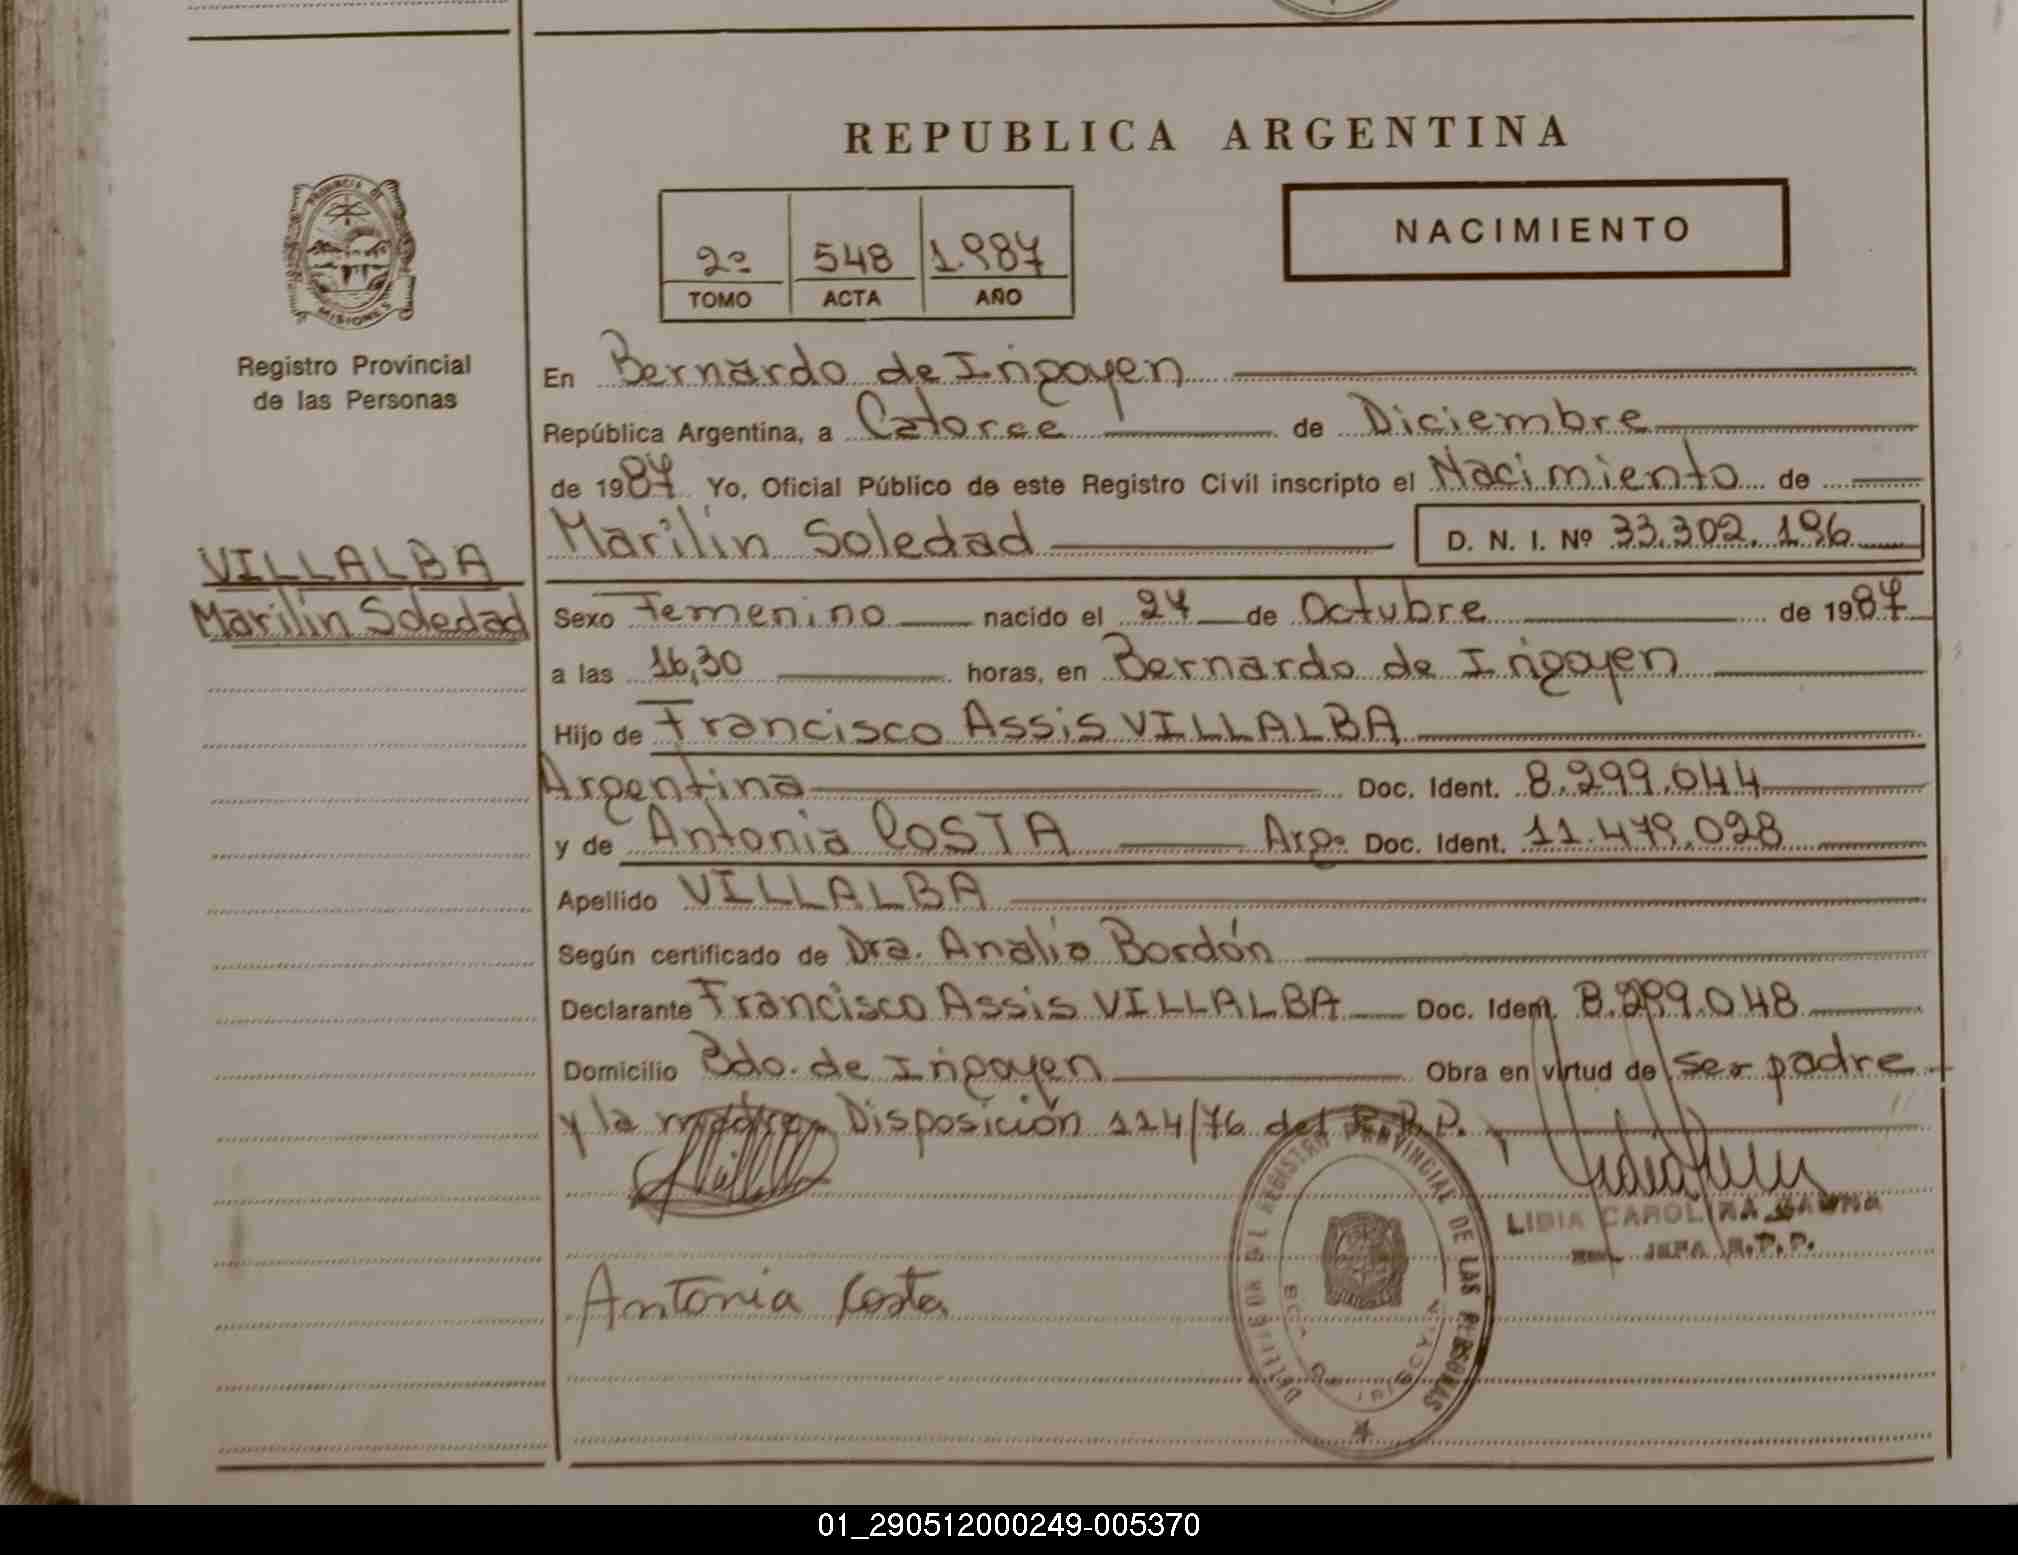 REPUBLICA ARGENTINA
NACIMIENTO
2º 548 1.987
TOMO ACTA AÑO
PROVINCIA DE MISIONES
Registro Provincial
de las Personas
VILLALBA
Marilin Soledad
En Bernardo de Irigoyen
República Argentina, a Catorce de Diciembre
de 1987 Yo, Oficial Público de este Registro Civil inscripto el Nacimiento de
Marilin Soledad D. N. I. Nº 33.302.196
Sexo Femenino nacido el 24 de Octubre de 1987
a las 16,30 horas, en Bernardo de Irigoyen
Hijo de Francisco Assis VILLALBA
Argentina Doc. Ident. 8.299.044
y de Antonia COSTA Argº Doc. Ident. 11.479.028
Apellido VILLALBA
Según certificado de Dra. Analia Bordón
Declarante Francisco Assis VILLALBA Doc. Ident. 8.299.048
Domicilio Bdo. de Irigoyen Obra en virtud de ser padre
y la madre Disposición 124/76 del R.P.P.
LIDIA CAROLINA
JEFA R.P.P.
Antonia Costa
DEL REGISTRO PROVINCIAL DE LAS PERSONAS
01_290512000249-005370